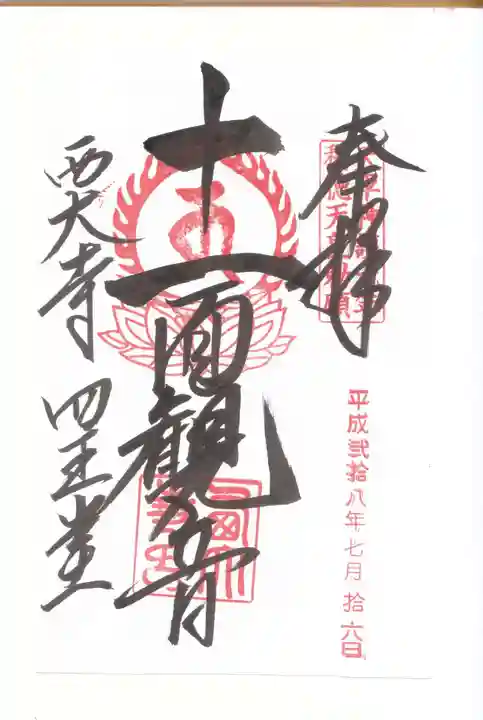 奉拝
平成弐拾八年七月拾六日
十一面観音
西大寺 四王堂